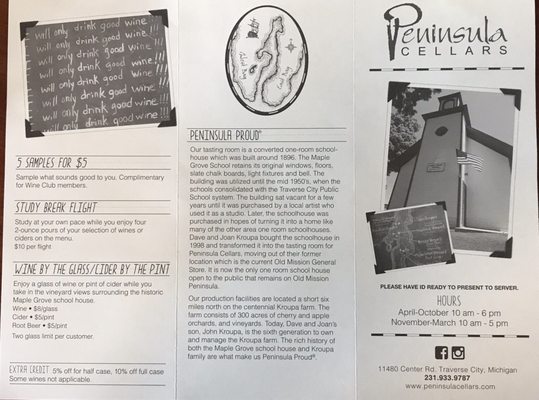 will only drink good wine!!!
will only drink good wine!!!
will only drink good wine!!!
will only drink good wine!!!
will only drink good wine!!!
will only drink good wine!!!
will only drink good wine!!!
will only drink good wine!!!
5 SAMPLES FOR $5
Sample what sounds good to you. Complimentary
for Wine Club members.
STUDY BREAK FLIGHT
Study at your own pace while you enjoy four
2-ounce pours of your selection of wines or
ciders on the menu.
$10 per flight
WINE BY THE GLASS/CIDER BY THE PINT
Enjoy a glass of wine or pint of cider while you
take in the vineyard views surrounding the historic
Maple Grove school house.
Wine • $8/glass
Cider • $5/pint
Root Beer • $5/pint
Two glass limit per customer.
EXTRA CREDIT 5% off for half case, 10% off full case
Some wines not applicable.
PENINSULA PROUD®
Our tasting room is a converted one-room school-
house which was built around 1896. The Maple
Grove School retains its original windows, floors,
slate chalk boards, light fixtures and bell. The
building was utilized until the mid 1950's, when the
schools consolidated with the Traverse City Public
School system. The building sat vacant for a few
years until it was purchased by a local artist who
used it as a studio. Later, the schoolhouse was
purchased in hopes of turning it into a home like
many of the other area one room schoolhouses.
Dave and Joan Kroupa bought the schoolhouse in
1998 and transformed it into the tasting room for
Peninsula Cellars, moving out of their former
location which is the current Old Mission General
Store. It is now the only one room school house
open to the public that remains on Old Mission
Peninsula.
Our production facilities are located a short six
miles north on the centennial Kroupa farm. The
farm consists of 300 acres of cherry and apple
orchards, and vineyards. Today, Dave and Joan's
son, John Kroupa, is the sixth generation to own
and manage the Kroupa farm. The rich history of
both the Maple Grove school house and Kroupa
family are what make us Peninsula Proud®.
Peninsula
CELLARS
PLEASE HAVE ID READY TO PRESENT TO SERVER.
HOURS
April-October 10 am - 6 pm
November-March 10 am - 5 pm
11480 Center Rd. Traverse City, Michigan
231.933.9787
www.peninsulacellars.com